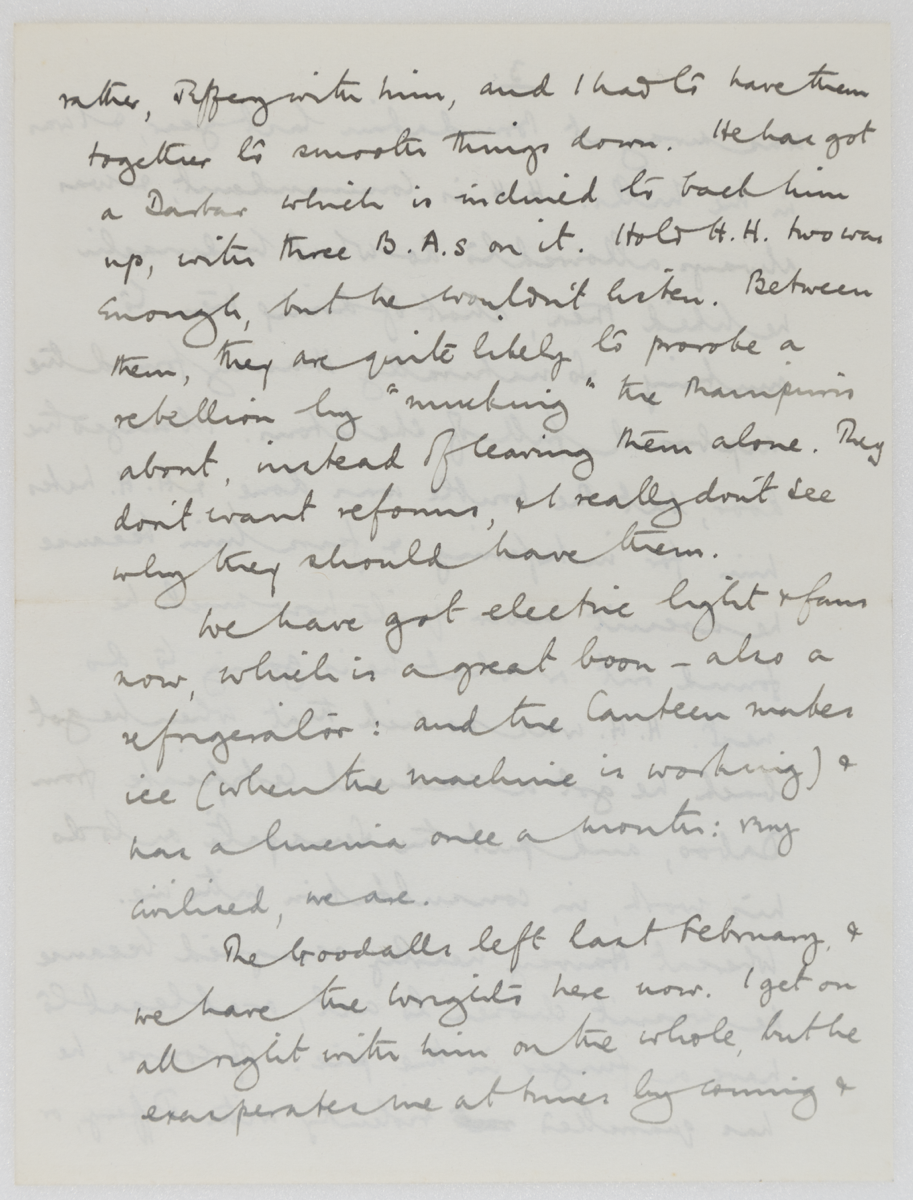 rather, Jeffery with him, and I had to have them
together to smooth things down. He has got
a Darbar which is inclined to back him
up, with three B.A.s on it. I told H.H. two was
enough, but he wouldn't listen. Between
them, they are quite likely to provoke a
rebellion by "mucking" the Manipuris
about, instead of leaving them alone. They
don't want reforms, & I really don't see
why they should have them.
We have got electric light & fans
now, which is a great boon – also a
refrigerator: and the Canteen makes
ice (when the machine is working) &
has a Cinema once a month: very
civilised, we are.
The Goodalls left last February, &
we have the Wrights here now. I get on
all right with him on the whole, but he
exasperates me at times by coming &